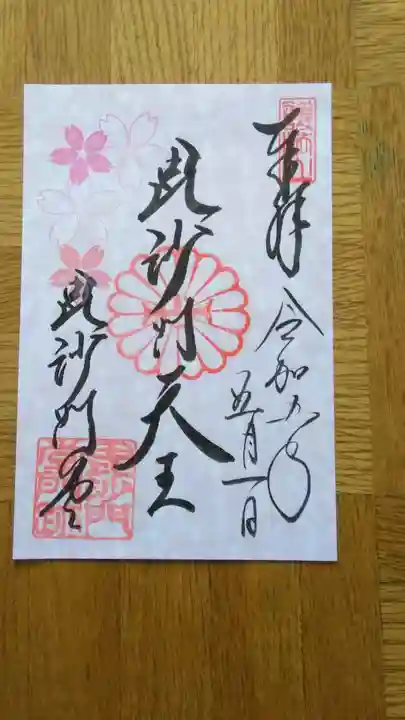 奉拝
令和
五月一日
毘沙門天王
毘沙門堂